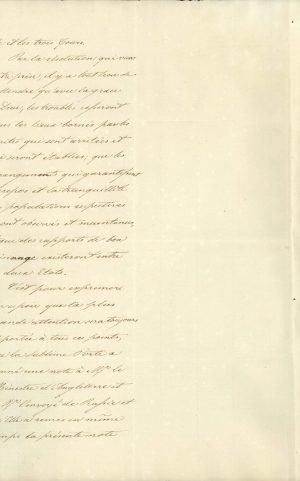 et les trois Cours.
Par la résolution que vous
prise, il y a tout lieu de
attendre qu'avec la grace
Dieu, les troubles cesseront
les lieux bornés par les
limites qui sont arrêtées et
seront établies, que les
arrangements qui garantissent
repos et la tranquillité
populations respectives
seront observés et maintenus,
que des rapports de bon
voisinage existeront entre
deux Etats.
C'est pour exprimer
espoir que la plus
grande attention sera toujours
portée à tous ces points,
la Sublime Porte a
donné une note à Mr. le
Ministre d'Angleterre et
Mr. l'envoyé de Russie et
Elle a remis en même
temps la présente note